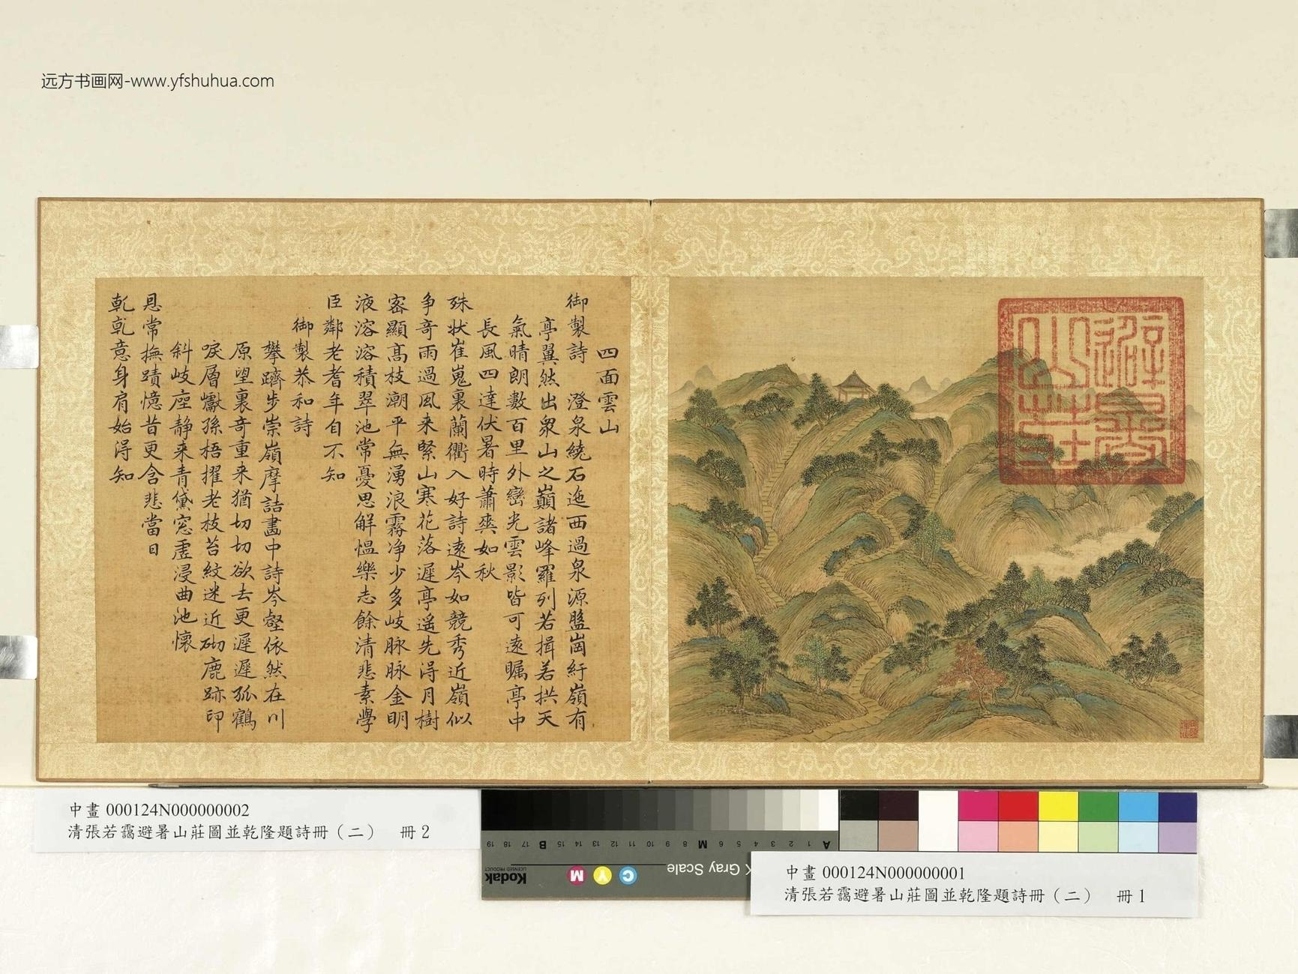 远方书画网-www.yfshuhua.com
避暑山莊
四面雲山
御製詩 澄泉繞石迤西過泉源盤崗紆嶺有
亭翼然出衆山之巔諸峰羅列若揖若拱天
氣晴朗數百里外巒光雲影皆可遠矚亭中
長風四達伏暑時蕭爽如秋
殊狀崔嵬裏蘭衢入好詩遠岑如競秀近嶺似
爭奇雨過風来緊山寒花落遲亭遥先得月樹
密顯高枝潮平無湧浪霧净少多岐脉脉金明
液溶溶積翠池常憂思解愠樂志餘清悲素學
臣鄰老耆年自不知
御製恭和詩
攀躋步崇嶺摩詰畫中詩岑壑依然在川
原望裏奇重来猶切切欲去更遲遲孤鶴
唳層巘孫梧擢老枝苔紋迷近砌鹿跡印
斜岐座静来青黛窓虚浸曲池懷
恩常撫蹟憶昔更含悲當日
乾乾意身肩始得知
中畫 000124N000000002
清張若靄避暑山莊圖並乾隆題詩冊（二） 冊 2
中畫 000124N000000001
清張若靄避暑山莊圖並乾隆題詩冊（二） 冊 1
Kodak
C Y M
Gray Scale
A 1 2 3 4 5 6 M 8 9 10 11 12 13 14 15 B 17 18 19